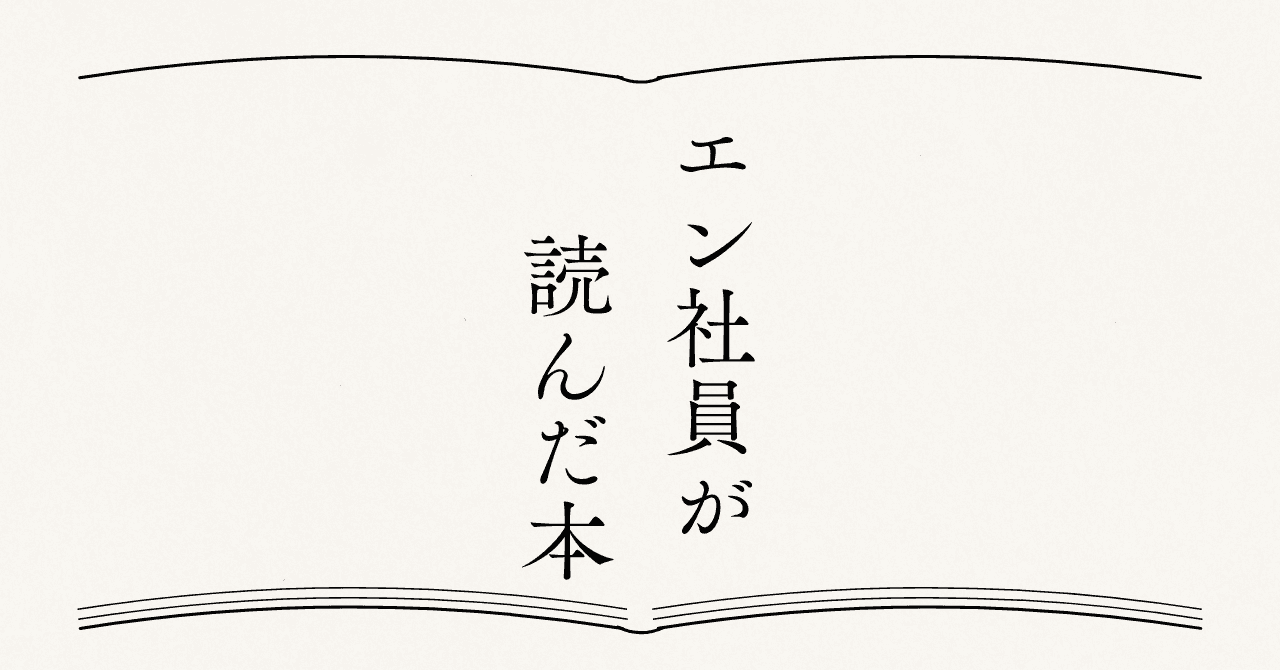 エン社員が
読んだ本